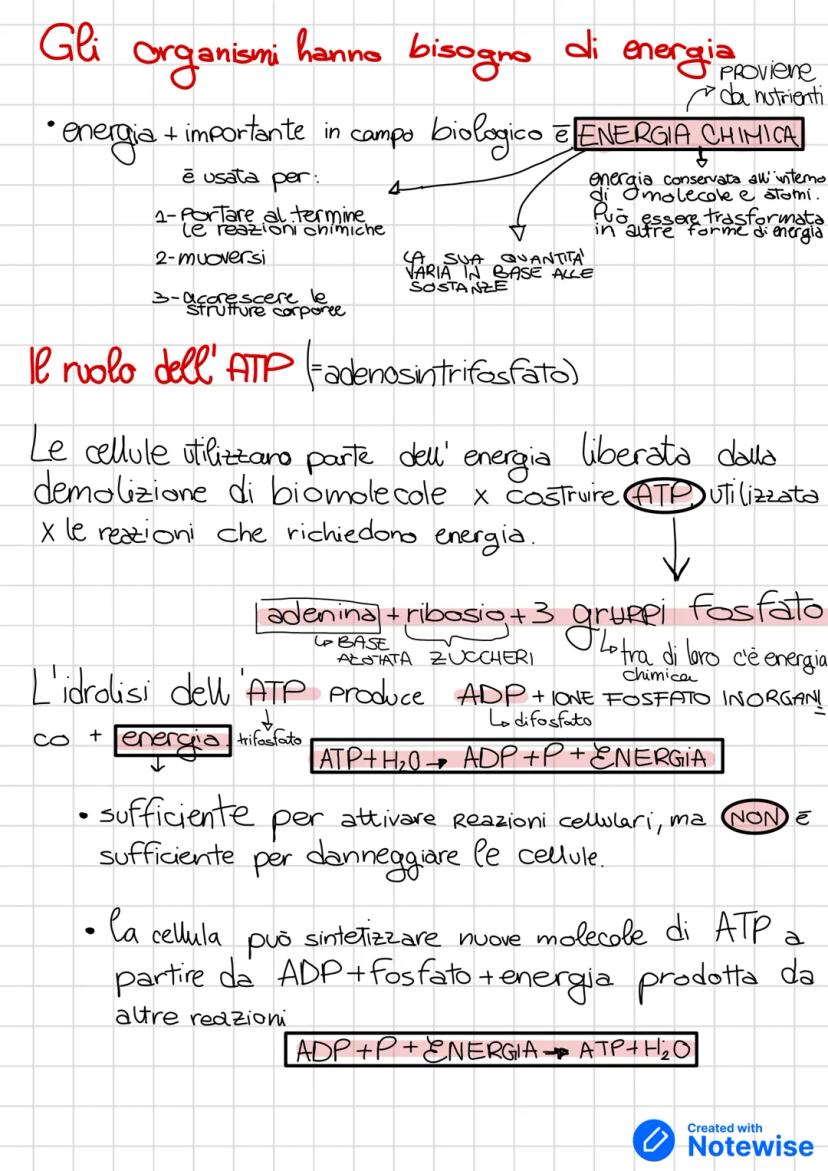 Gli organismi hanno bisogno di energia
PROVIENE
da nutrienti
• energia + importante in campo biologico ē ENERGIA CHIMICA
ē usata per:
1- Portare al termine
le reazioni chimiche
2- muoversi
3- accrescere le
strutture corporee
LA SUA QUANTITA'
VARIA IN BASE ALLE
SOSTANZE
energia conservata all'interno
di molecole e atomi.
Può essere trasformata
in altre forme di energia
Il ruolo dell'ATP (=adenosintrifosfato)
Le cellule utilizzano parte dell'energia liberata dalla
demolizione di biomolecole x costruire ATP, utilizzata
x le reazioni che richiedono energia.
adenina + ribosio + 3 gruppi fosfato
BASE
AZOTATA
ZUCCHERI
tra di loro c'è energia
chimica
L'idrolisi dell'ATP produce ADP + IONE FOSFATO INORGANI
trifosfato
difosfato
co + energia.
ATP+H₂O → ADP+P+ENERGIA
• sufficiente per attivare reazioni cellulari, ma NON ē
sufficiente per danneggiare le cellule.
• la cellula può sintetizzare nuove molecole di ATP a
partire da ADP+fosfato+energia prodotta da
altre reazioni
ADP+P+ENERGIA → ATP+H₂O
Created with
Notewise